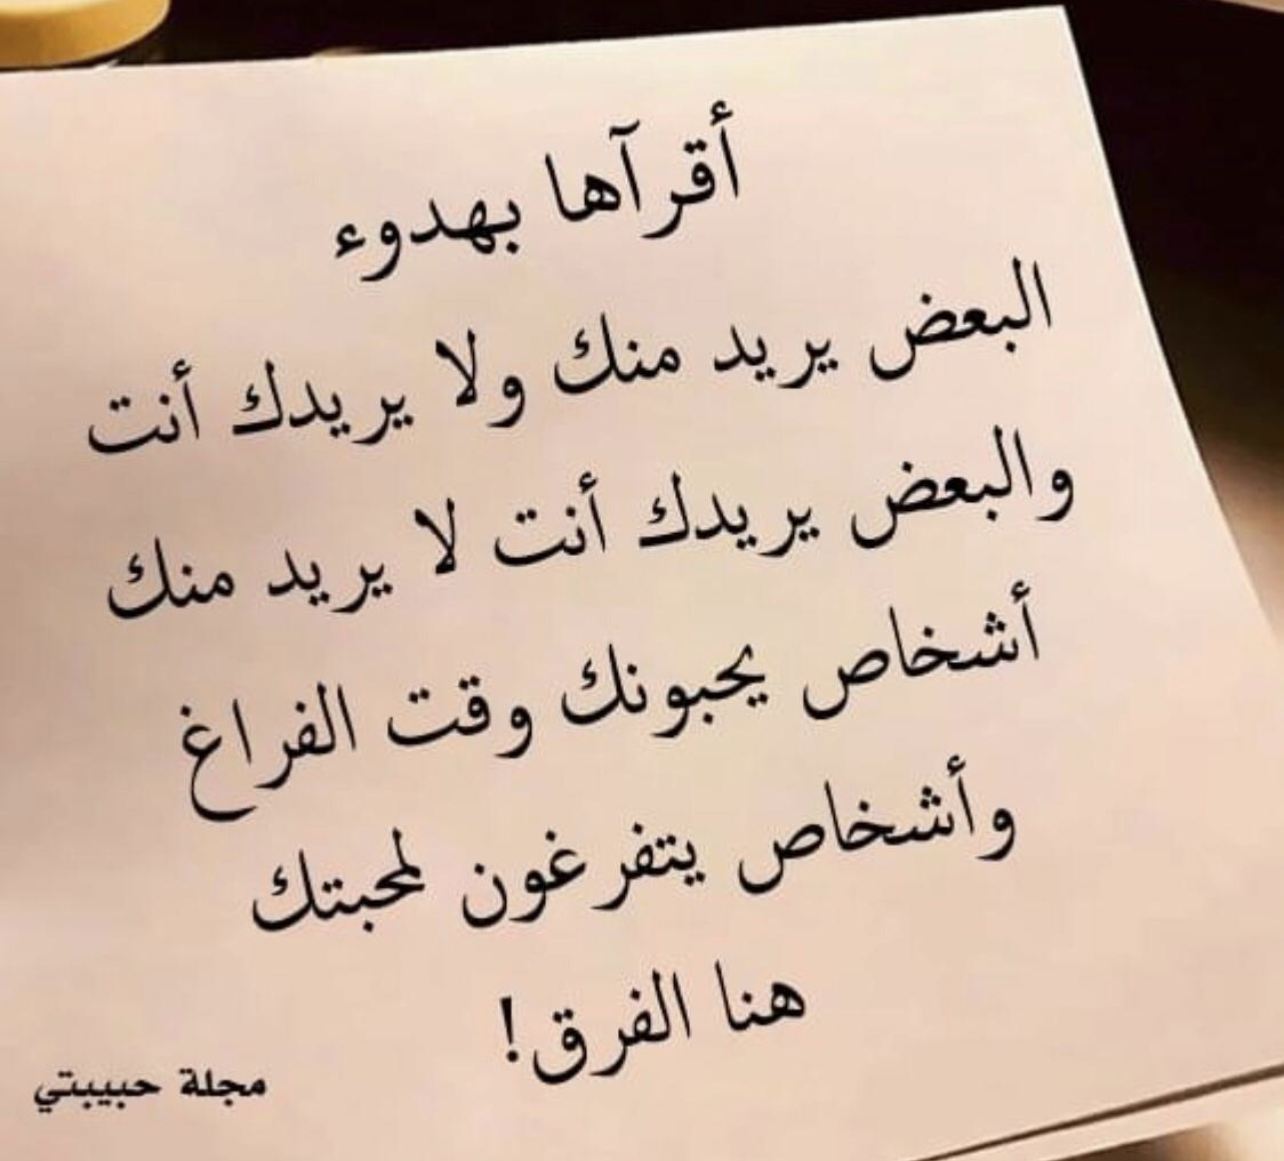 أقرآها بهدوء
البعض يريد منك ولا يريدك أنت
والبعض يريدك أنت لا يريد منك
أشخاص يحبونك وقت الفراغ
وأشخاص يتفرغون لمحبتك
هنا الفرق!
مجلة حبيبتي